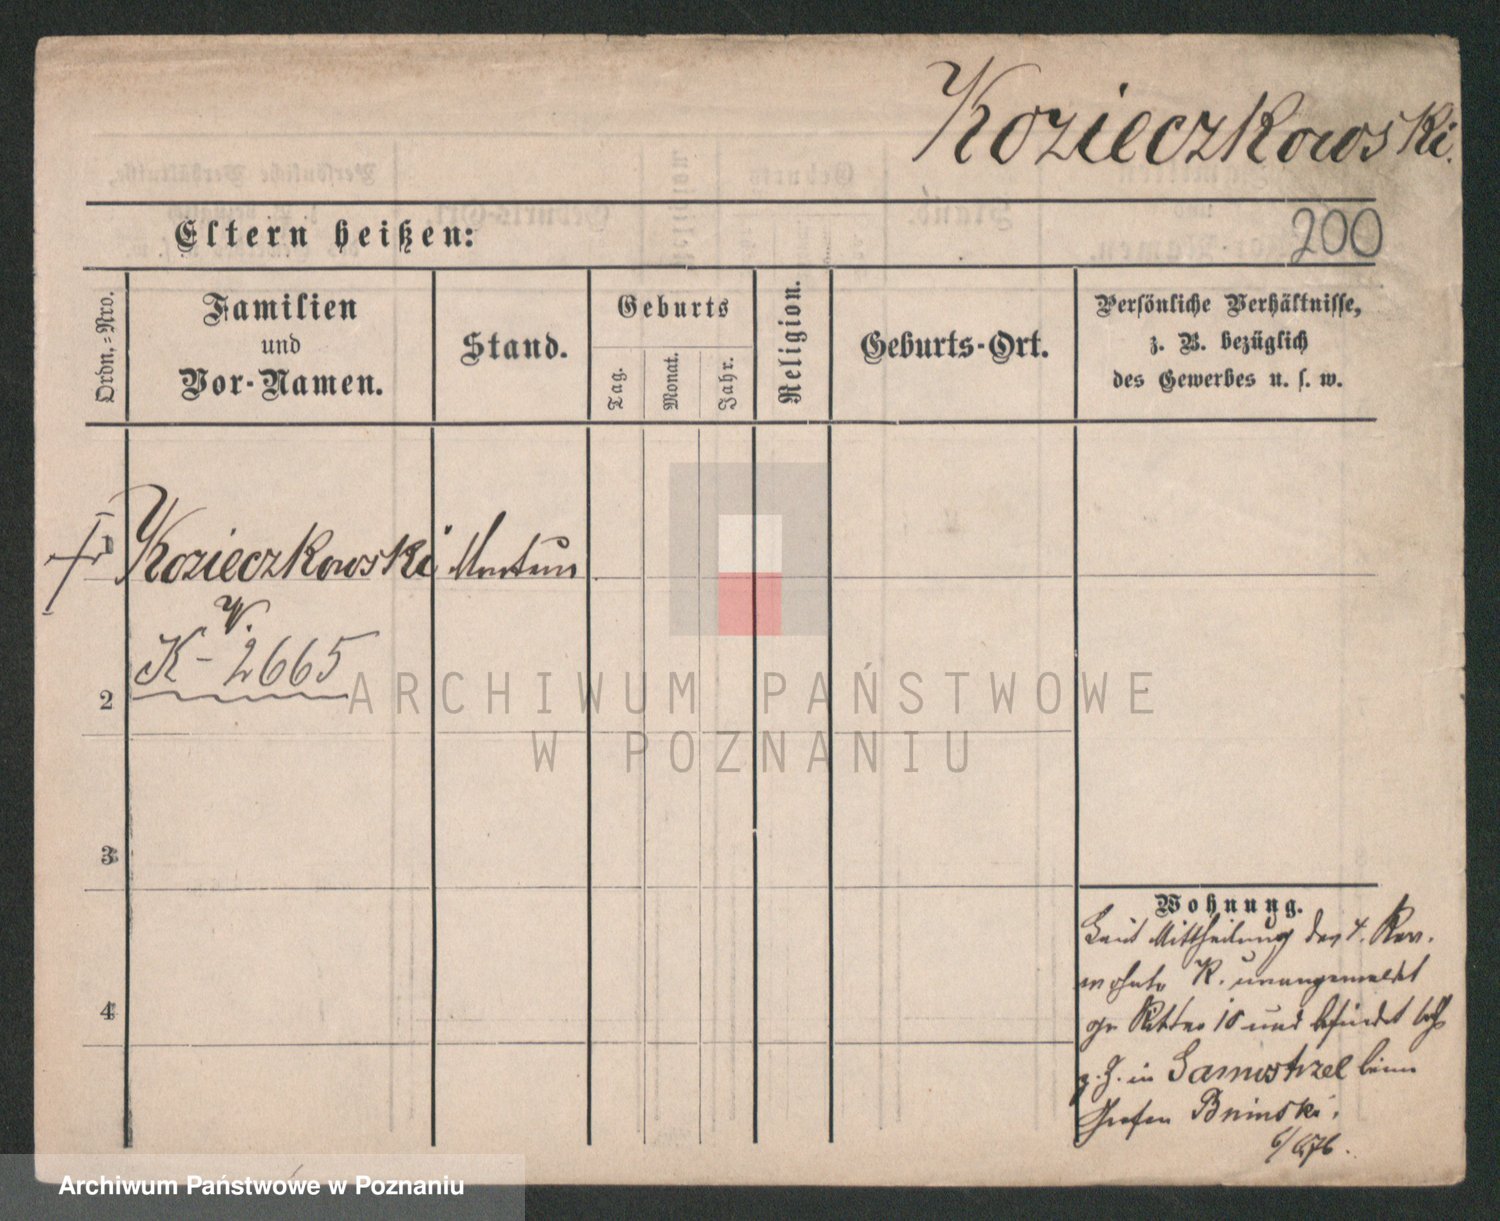 Kozieczkowski.
Eltern heißen:
200
Ordn.-Nro.
Familien
und
Vor-Namen.
Stand.
Geburts
Tag.
Monat.
Jahr.
Religion.
Geburts-Ort.
Persönliche Verhältnisse,
z. B. bezüglich
des Gewerbes u. s. w.
1
Kozieczkowski
V.
K-2665
2
3
4
Wohnung.
Laut Mittheilung des 4. Rev.
wohnte K. unangemeldet
gr. Ritter 10 und befindet sich
z. Z. in Samostrzel beim
Grafen Bninski.
ARCHIWUM PAŃSTWOWE
W POZNANIU
Archiwum Państwowe w Poznaniu